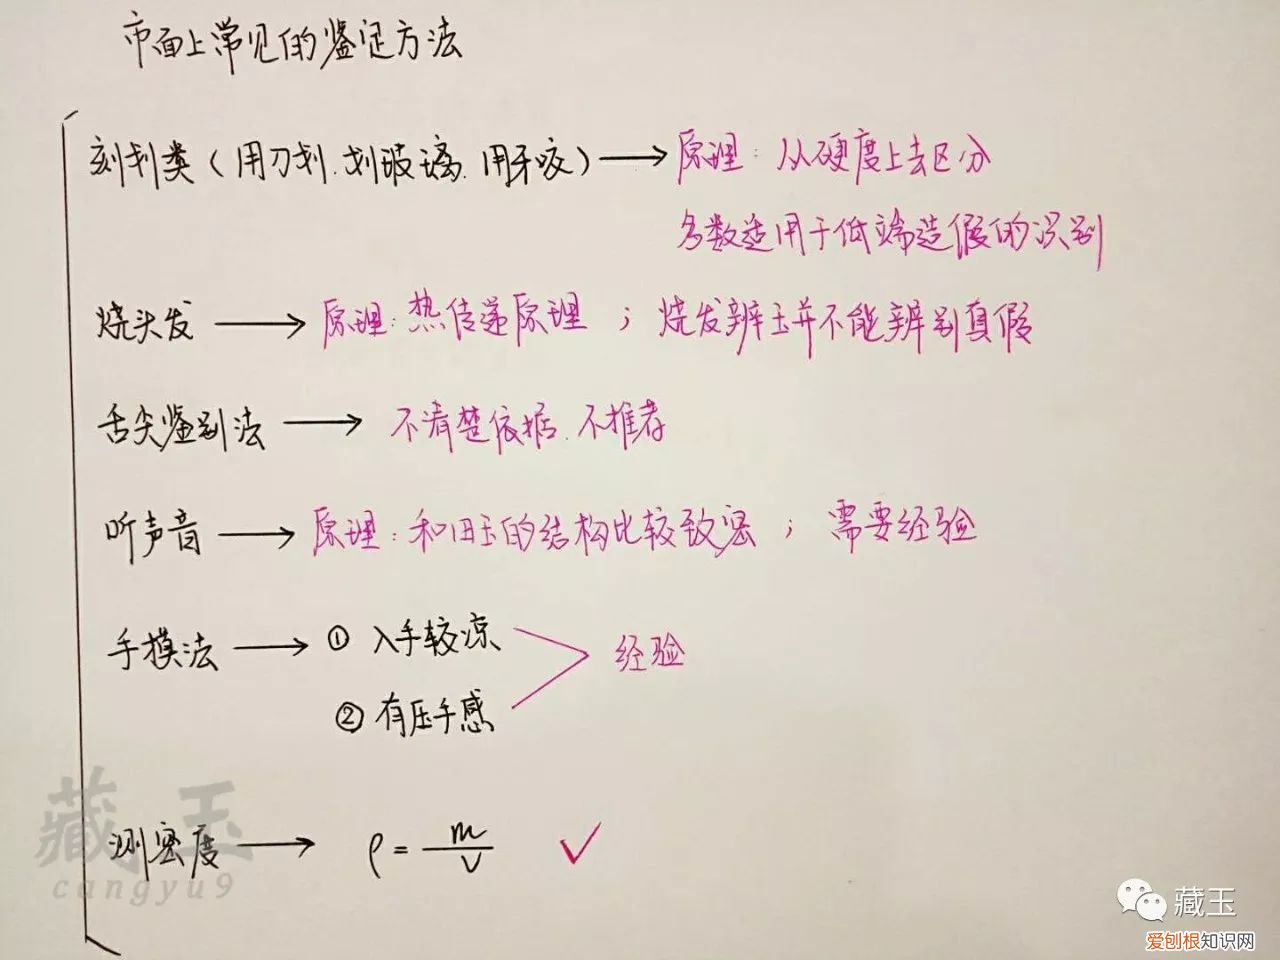 市面上常见的鉴定方法
刻划类（用刀划、划玻璃、用牙咬）→ 原理：从硬度上去区分
多数适用于低端造假的识别
烧头发 → 原理：热传递原理；烧发辨玉并不能辨别真假
舌尖鉴别法 → 不清楚依据、不推荐
听声音 → 原理：和田玉的结构比较致密；需要经验
手摸法 → ① 入手较凉
经验
② 有压手感
测密度 → ρ = m/V ✓
藏玉
cangyu9
藏玉
爱刨根知识网